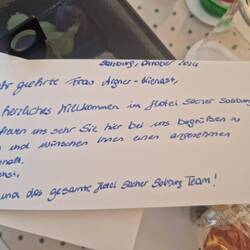 Salzburg, Oktober 2024
hr geehrte Frau
herzliches Willkommen im Hotel Sacher Salzburg
freuen uns sehr Sie hier bei uns begrüßen zu
n und wünschen Ihnen einen angenehmen
und das gesamte Hotel Sacher Salzburg Team!